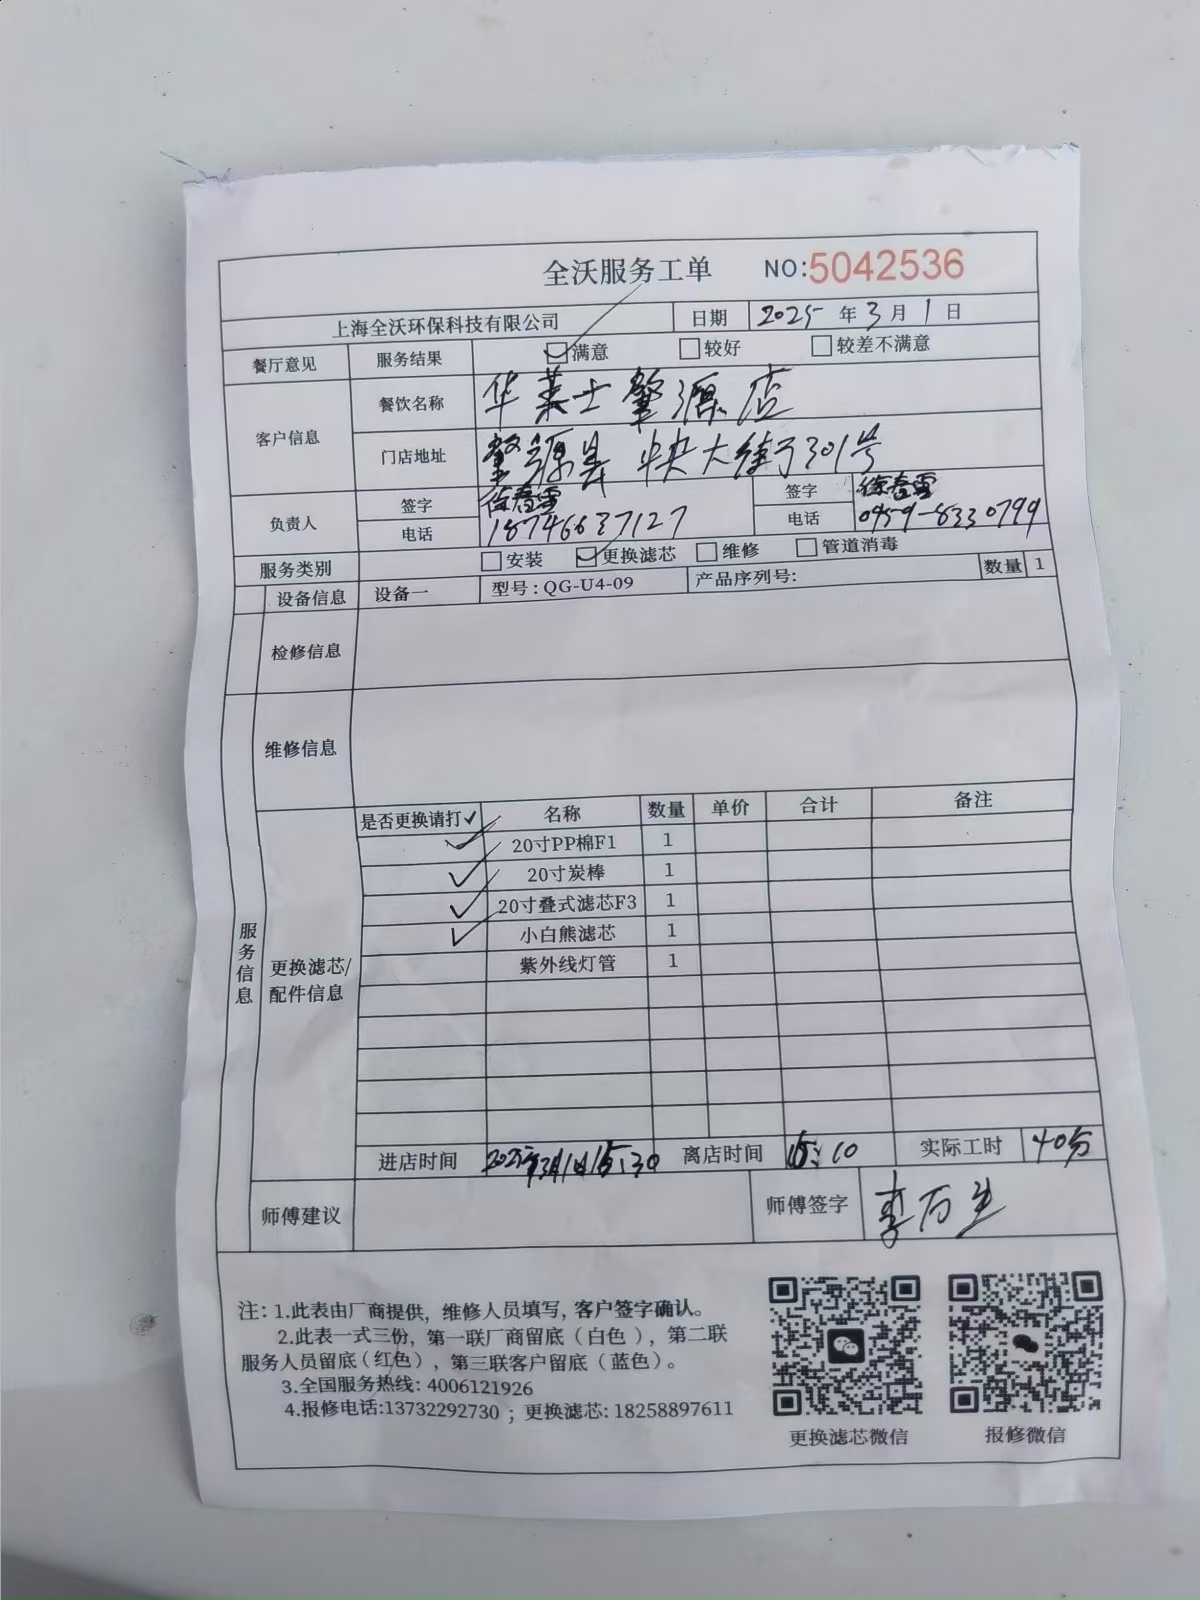 全沃服务工单 NO:5042536
上海全沃环保科技有限公司 日期 2025年3月1日
餐厅意见 服务结果 满意 较好 较差不满意
客户信息 餐饮名称 华莱士肇源店
门店地址 肇源县 中央大街于301号
负责人 签字 徐春雪 签字 徐春雪
电话 18746637127 电话 0459-8330799
服务类别 安装 更换滤芯 维修 管道消毒
设备信息 设备一 型号:QG-U4-09 产品序列号: 数量 1
检修信息
维修信息
服务信息
更换滤芯/配件信息
是否更换请打✓ 名称 数量 单价 合计 备注
✓ 20寸PP棉F1 1
✓ 20寸炭棒 1
✓ 20寸叠式滤芯F3 1
✓ 小白熊滤芯 1
紫外线灯管 1
进店时间 2025年3月1日 :30 离店时间 :10 实际工时 40分
师傅建议 师傅签字 李万生
注: 1.此表由厂商提供, 维修人员填写, 客户签字确认。
2.此表一式三份, 第一联厂商留底(白色), 第二联
服务人员留底(红色), 第三联客户留底(蓝色)。
3.全国服务热线: 4006121926
4.报修电话:13732292730 ; 更换滤芯: 18258897611
更换滤芯微信 报修微信